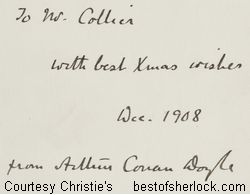 To W. Collier
with best Xmas wishes
Dec. 1908
from Arthur Conan Doyle
Courtesy Christie's bestofsherlock.com